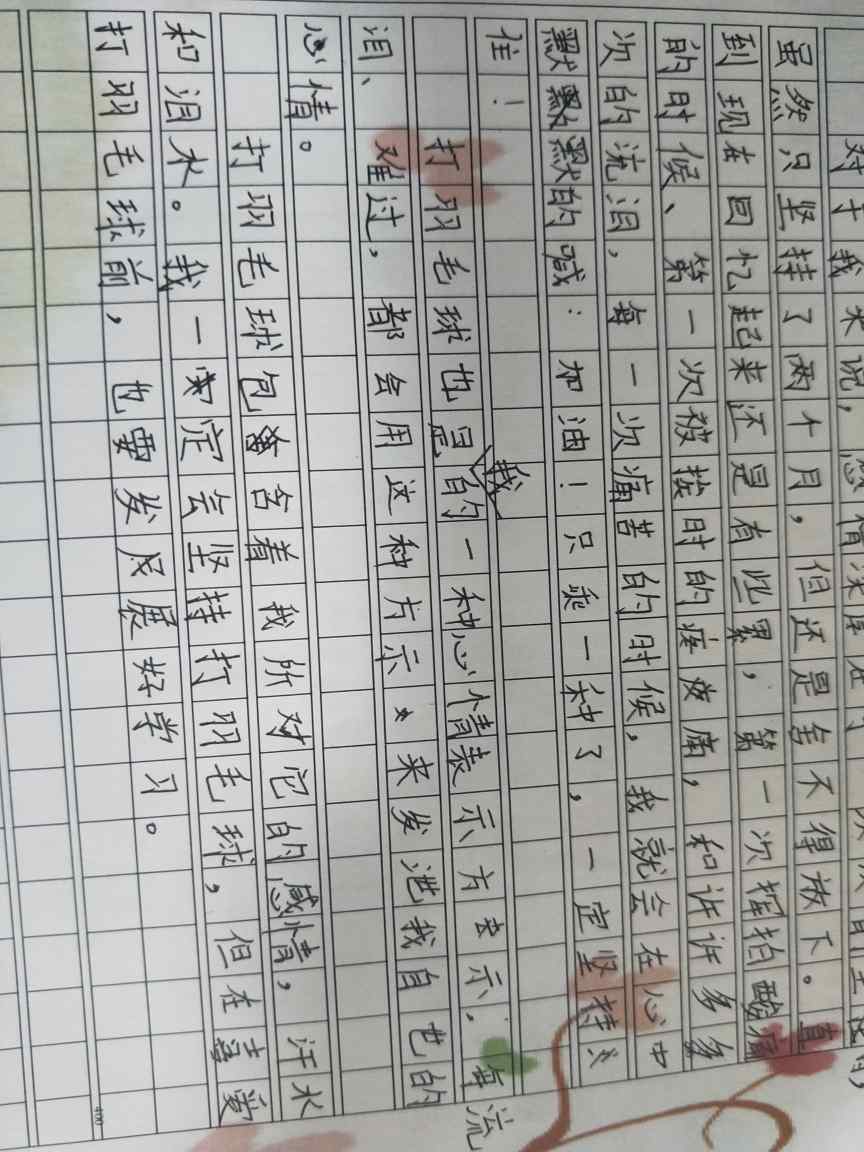 对于我来说，感情深厚
虽然只坚持了两个月，但还是舍不得放下。直
到现在回忆起来还是有些累，第一次挥拍酸痛
的时候、第一次被按时的疼痛，和许许多多
次的流泪，每一次痛苦的时候，我就会在心中
默默的喊：加油！只乘一种了，一定坚持
住！
打羽毛球也是我的一种心情表示方示，每流
泪、难过，都会用这种方示来发泄我自也的
心情。
打羽毛球包含着我所对它的感情，汗水
和泪水。我一定会坚持打羽毛球，但在喜爱
打羽毛球前，也要发展好学习。
400